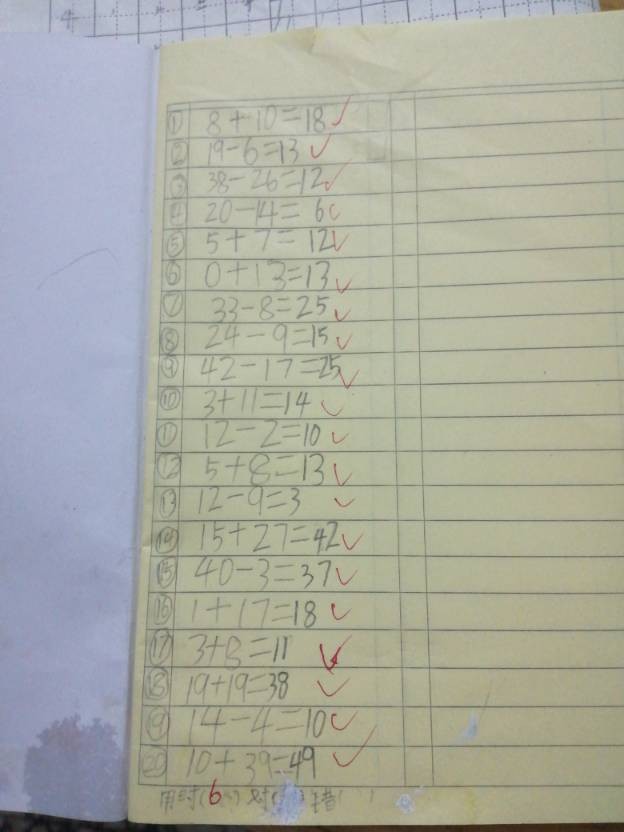 ① 8+10=18
② 19-6=13
③ 38-26=12
④ 20-14=6
⑤ 5+7=12
⑥ 0+13=13
⑦ 33-8=25
⑧ 24-9=15
⑨ 42-17=25
⑩ 3+11=14
⑪ 12-2=10
⑫ 5+8=13
⑬ 12-9=3
⑭ 15+27=42
⑮ 40-3=37
⑯ 1+17=18
⑰ 3+8=11
⑱ 19+19=38
⑲ 14-4=10
⑳ 10+39=49
用时(6 ) 对( ) 错( )